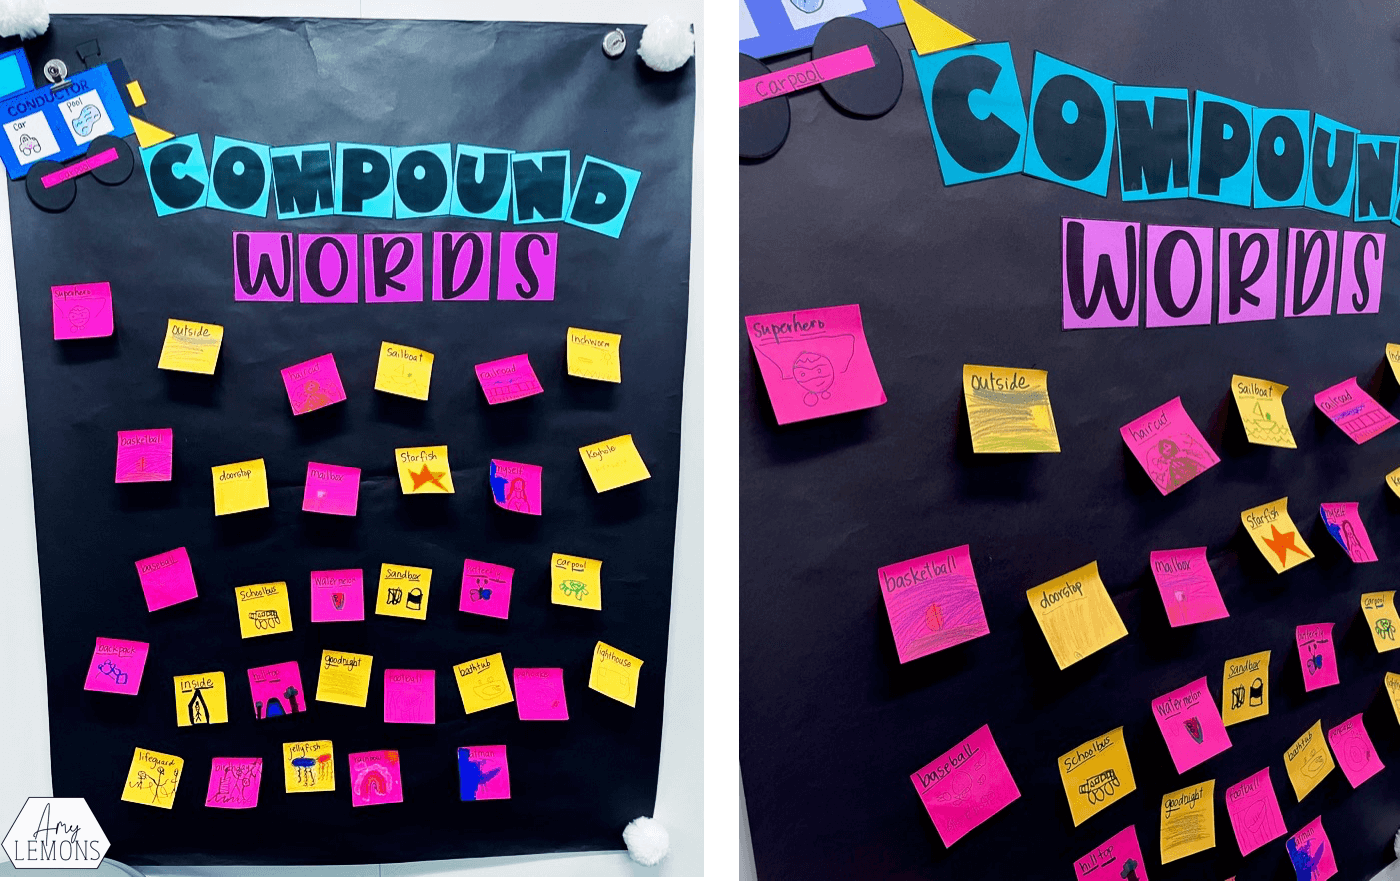 CONDUCTOR
car
pool
COMPOUND
WORDS
superhero
outside
haircut
Sailboat
railroad
Inchworm
basketball
doorstop
mailbox
Starfish
myself
Keyhole
baseball
schoolbus
Watermelon
Sandbox
butterfly
carpool
backpack
inside
hilltop
goodnight
football
bathtub
lighthouse
lifeguard
jellyfish
rainbow
Amy
LEMONS
Carpool
COMPOUN
WORDS
superhero
outside
haircut
Sailboat
railroad
basketball
doorstop
mailbox
starfish
myself
baseball
schoolbus
Watermelon
Sandbox
butterfly
carpool
hilltop
goodnight
football
bathtub